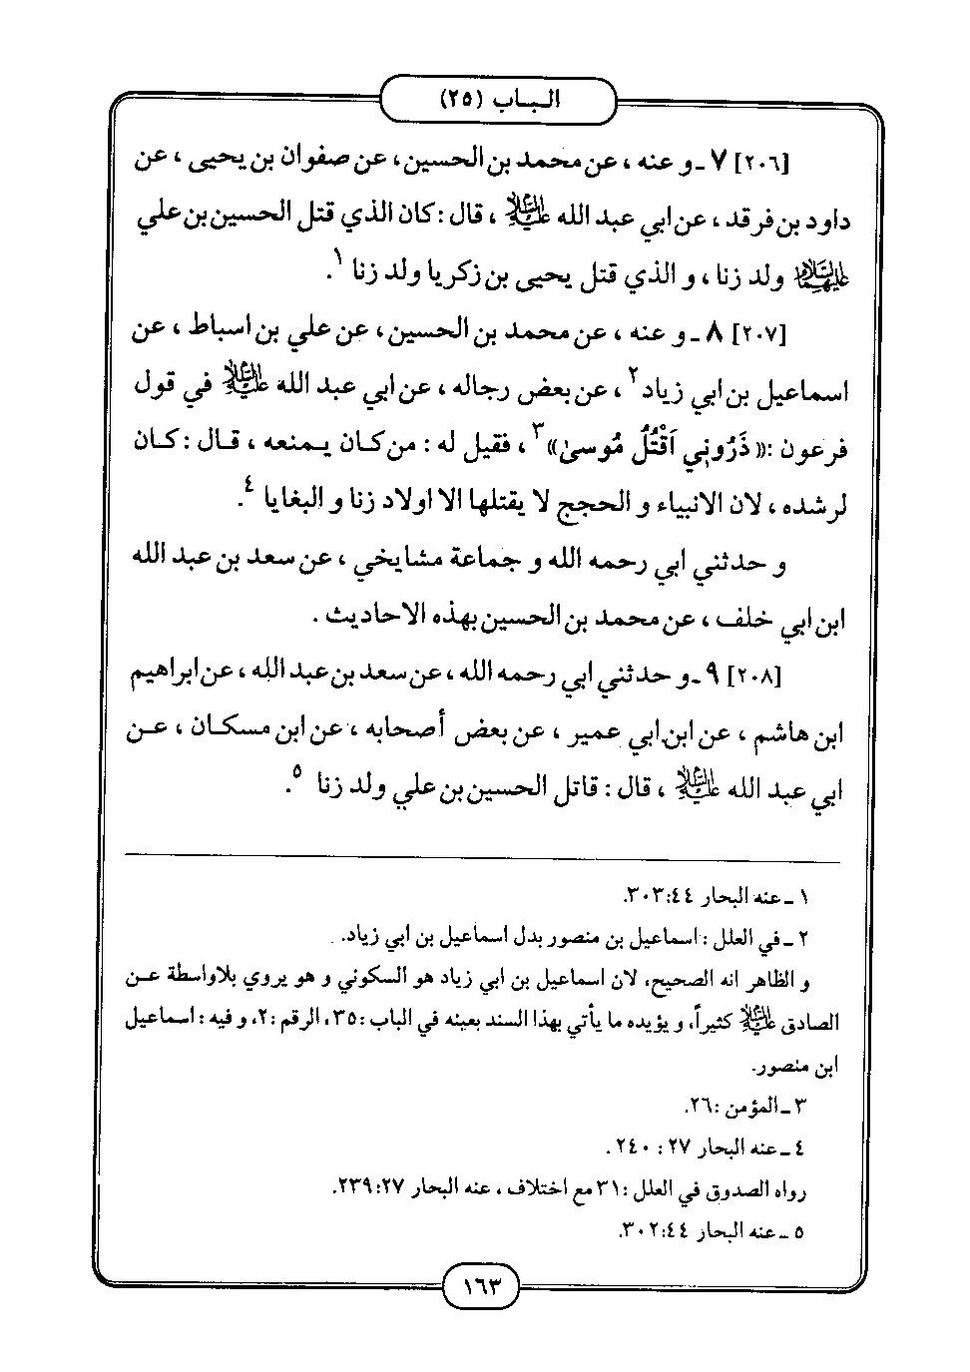 الباب (٢٥)
[٢٠٦] ٧ ـ و عنه ، عن محمد بن الحسين، عن صفوان بن يحيى ، عن
داود بن فرقد ، عن ابي عبد الله عليه السلام ، قال : كان الذي قتل الحسين بن علي
عليهما السلام ولد زنا ، و الذي قتل يحيى بن زكريا ولد زنا ١.
[٢٠٧] ٨ ـ و عنه ، عن محمد بن الحسين، عن علي بن اسباط ، عن
اسماعيل بن ابي زياد ٢ ، عن بعض رجاله ، عن ابي عبد الله عليه السلام في قول
فرعون : «ذَرُوني اَقْتُلُ مُوسىٰ» ٣ ، فقيل له : من كان يمنعه ، قال : كان
لرشده ، لان الانبياء و الحجج لا يقتلها الا اولاد زنا و البغايا ٤.
و حدثني ابي رحمه الله و جماعة مشايخي ، عن سعد بن عبد الله
ابن ابي خلف ، عن محمد بن الحسين بهذه الاحاديث .
[٢٠٨] ٩ ـ و حدثني ابي رحمه الله ، عن سعد بن عبد الله ، عن ابراهيم
ابن هاشم ، عن ابن ابي عمير ، عن بعض أصحابه ، عن ابن مسكان ، عن
ابي عبد الله عليه السلام ، قال : قاتل الحسين بن علي ولد زنا ٥.
١ ـ عنه البحار ٤٤:٣٠٣.
٢ ـ في العلل : اسماعيل بن منصور بدل اسماعيل بن ابي زياد.
و الظاهر انه الصحيح، لان اسماعيل بن ابي زياد هو السكوني و هو يروي بلاواسطة عن
الصادق عليه السلام كثيراً، و يؤيده ما يأتي بهذا السند بعينه في الباب :٣٥، الرقم :٢، و فيه : اسماعيل
ابن منصور.
٣ ـ المؤمن :٢٦.
٤ ـ عنه البحار ٢٧ : ٢٤٠ .
رواه الصدوق في العلل :٣١ مع اختلاف ، عنه البحار ٢٧:٢٣٩.
٥ ـ عنه البحار ٤٤:٣٠٢.
١٦٣